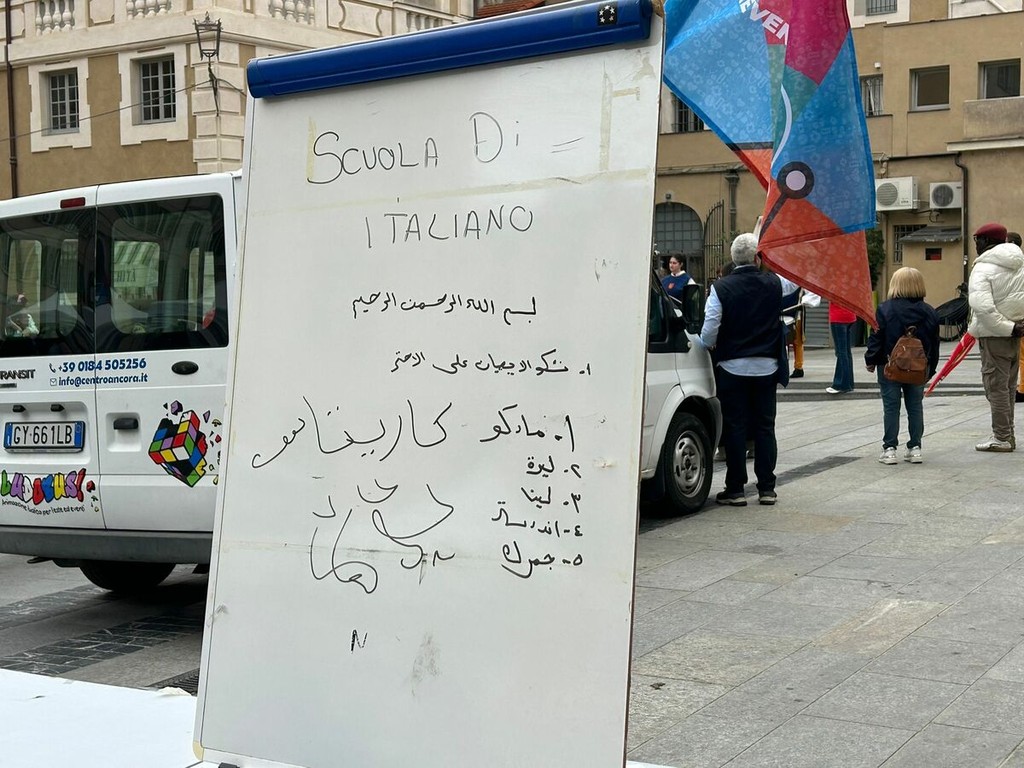 EVEN
SCUOLA Di =
ITALIANO
بسم الله الرحمن الرحيم
١. نشكو الاجبيات على الاحتر
١. ماركو كاريتاسو
٢- ليزة
٣- لينا
٤- اندرستر
٥- جمرك
N
TRANSIT
+39 0184 505256
info@centroancora.it
GY 661LB
LUDOBUS!